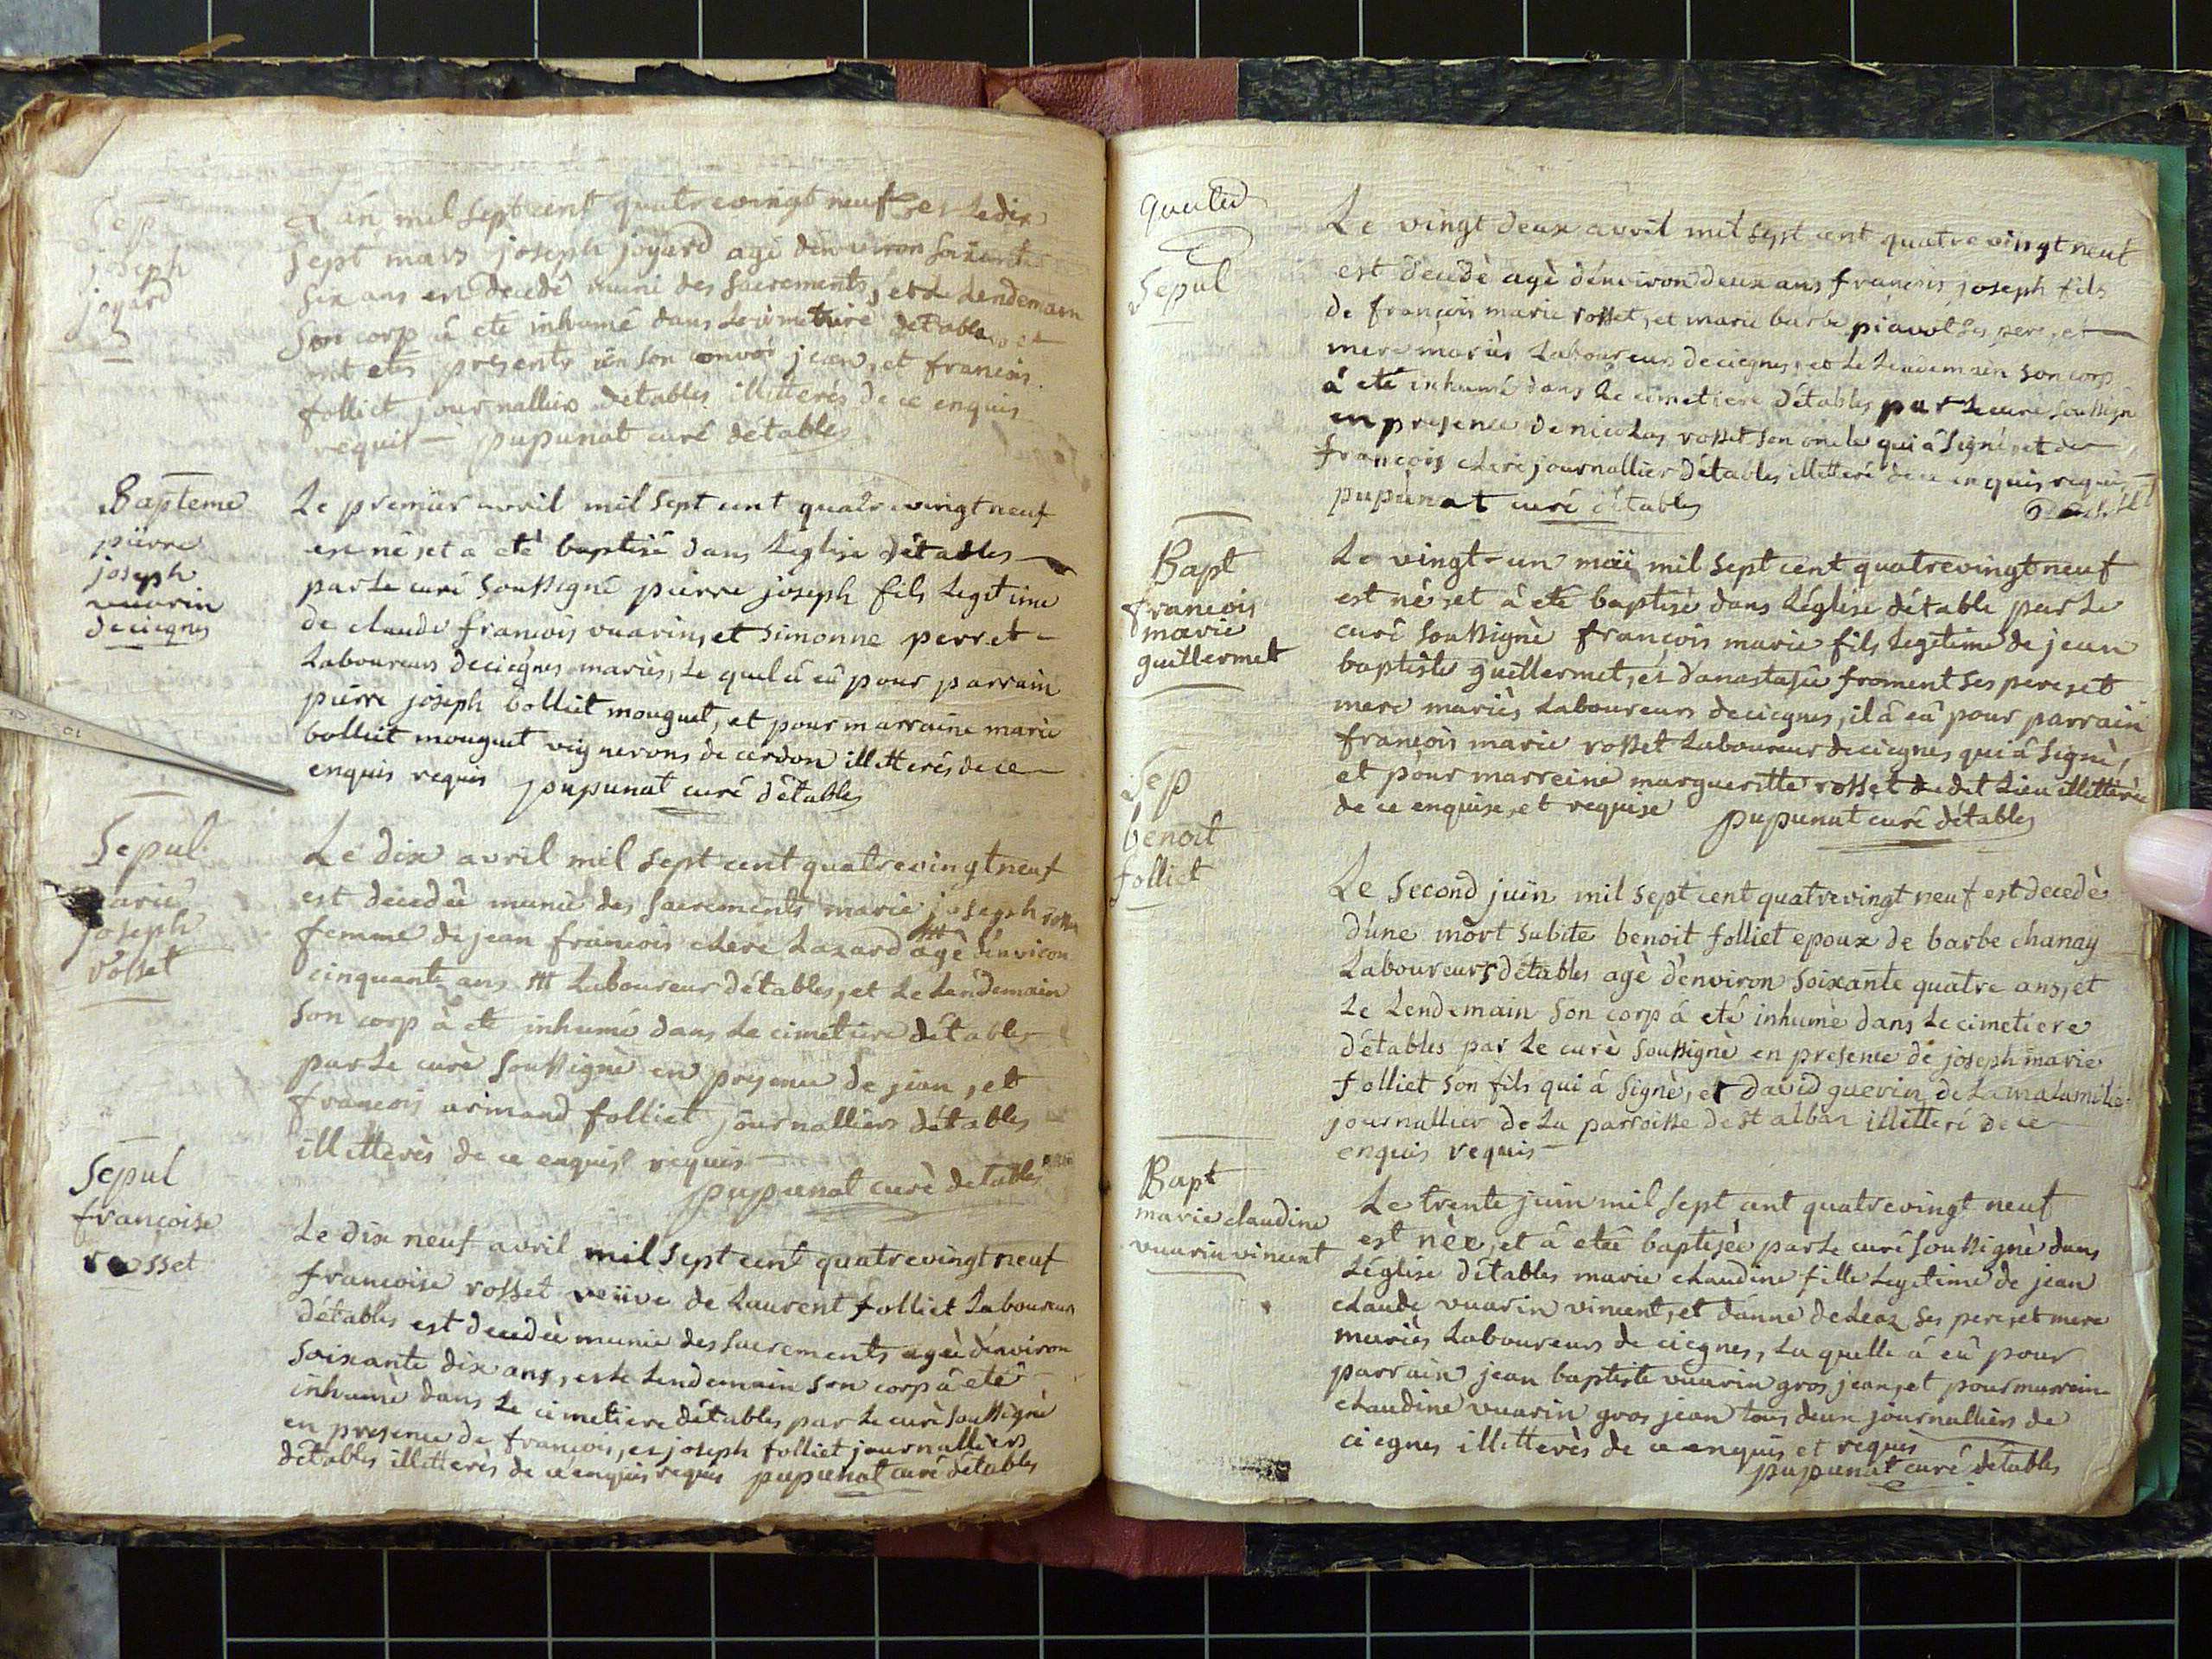 Sep
joseph
joyard
L'an mil sept cent quatrevingt neuf et le dix
sept mars joseph joyard agé denviron soixante
six ans est decedé muni des sacrements, et le lendemain
son corp â eté inhumé dans le cimetiere détables
ont etés presents â son convoi jean, et francois
folliet journalliers détables illitterés de ce enquis
requis — pupunat curé détables
Bapteme
pierre
joseph
vuarin
deciegnes
Le premier avril mil sept cent quatrevingt neuf
est né, et a eté baptisé dans Leglise détables
par Le curé soussigné pierre joseph fils Legitime
de claude francois vuarin, et simonne perret
Laboureurs deciegnes mariés, Le quel â eû pour parrain
pierre joseph bolliet mouguet, et pour marraine marie
bolliet mouguet vignerons de cerdon illitterés de ce
enquis requis pupunat curé détables
Sepul
marie
joseph
rosset
Le dix avril mil sept cent quatrevingt neuf
est decedée munie des sacrements marie joseph rosset
femme de jean francois clerc Lazard agè d'environ
cinquante ans Laboureur détables, et Le Lendemain
son corp â eté inhumé dans Le cimetiere détables
par Le curè soussignè en presence de jean, et
francois armand folliet journalliers détables
illitterès de ce enquis requis
pupunat curè detables
Sepul
francoise
rosset
Le dix neuf avril mil sept cent quatrevingt neuf
francoise rosset veüve de Laurent folliet Laboureur
détables est decedée munie des sacrements agée d'environ
soixante dix ans, et le Lendemain son corp â etè
inhumè dans Le cimetiere détables par Le curè soussignè
en presence de francois, et joseph folliet journalliers
détables illitterès de ce enquis requis pupunat curé détables
Sepul
Le vingt deux avril mil sept cent quatrevingt neuf
est decedè agè dénviron deux ans francois joseph fils
de francois marie rosset, et marie barbe piavot ses pere, et
mere mariès Laboureurs deciegnes, et Le Lendemain son corp
â eté inhumé dans Le cimetiere détables par Le curé soussigné
en presence de nicolas rosset son oncle qui â signé, et de
francois clerc journallier détables illitteré de ce enquis requis
pupunat curé détables
Bapt
francois
marie
guillermet
Le vingt-un mäi mil sept cent quatrevingt neuf
est nè, et â eté baptisé dans Léglise détable par Le
curé soussignè françois marie fils Legitime de jean
baptiste guillermet, et d'anastasie froment ses pere, et
mere mariès Laboureurs deciegnes, il â eû pour parrain
francois marie rosset Laboureur deciegnes qui â signè,
et pour marreine margueritte rosset du dit Lieu illitterée
de ce enquise, et requise pupunat curé détables
Sep
benoit
folliet
Le second juin mil sept cent quatrevingt neuf est decedè
d'une mort subite benoit folliet epoux de barbe chanay
Laboureurs détables agè d'environ soixante quatre ans, et
Le Lendemain son corp â eté inhumè dans Le cimetiere
détables par Le curè soussignè en presence de joseph marie
folliet son fils qui â signè, et david guerin de
journallier de La parroisse de st alban illitteré de ce
enquis requis
Bapt
marie claudine
vuarin vincent
Le trente juin mil sept cent quatrevingt neuf
est nèe, et â etée baptisée par Le curé soussignè dans
Léglise détables marie claudine fille Legitime de jean
claude vuarin vincent, et danne deleaz ses pere, et mere
mariès Laboureurs de ciegnes, La quelle â eû pour
parrain jean baptiste vuarin gros jean, et pour marreine
claudine vuarin gros jean tous deux journalliers de
ciegnes illitterès de ce enquis et requis
pupunat curé détables